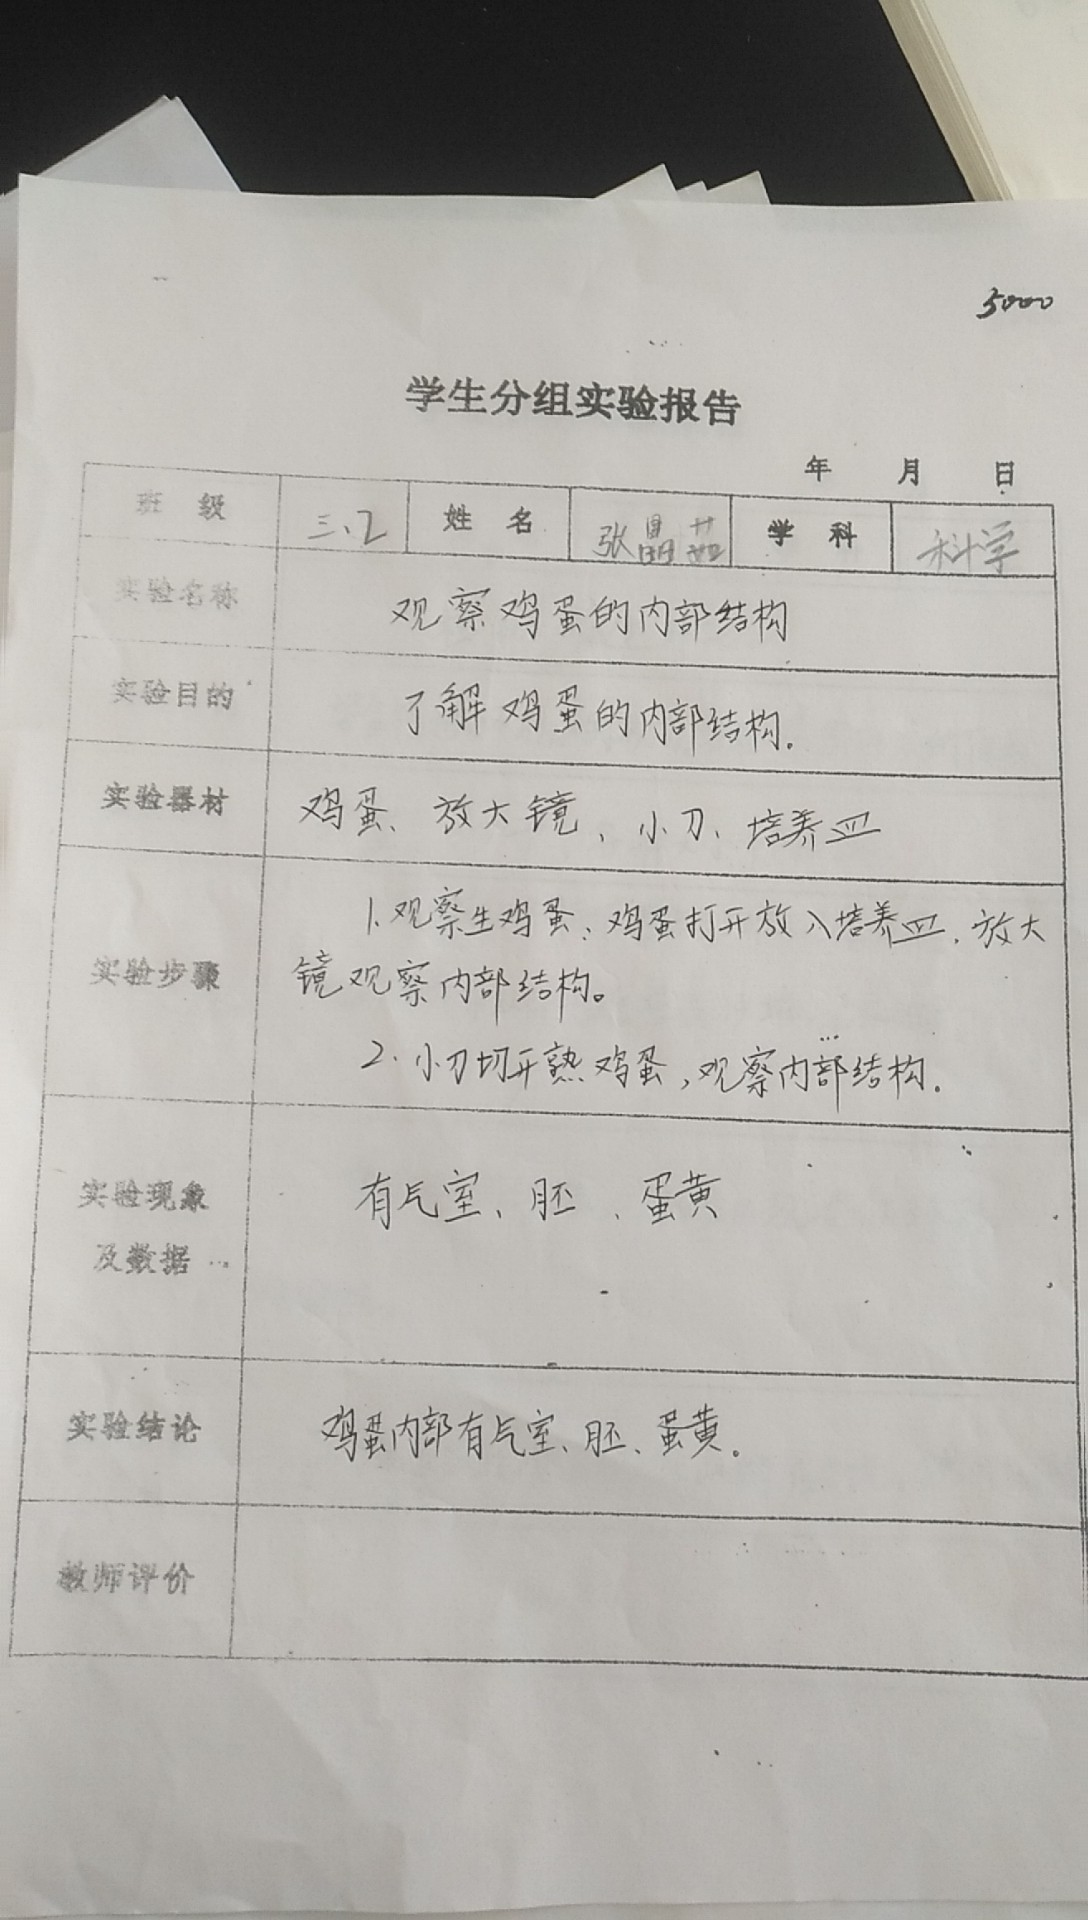 5000
学生分组实验报告
年 月 日
班 级 三、乙 姓 名 张晶茹 学 科 科学
实验名称 观察鸡蛋的内部结构
实验目的 了解鸡蛋的内部结构.
实验器材 鸡蛋、放大镜、小刀、培养皿
实验步骤
1.观察生鸡蛋:鸡蛋打开放入培养皿.放大
镜观察内部结构。
2.小刀切开熟鸡蛋,观察内部结构.
实验现象
及数据
有气室、胚、蛋黄
实验结论 鸡蛋内部有气室、胚、蛋黄.
教师评价